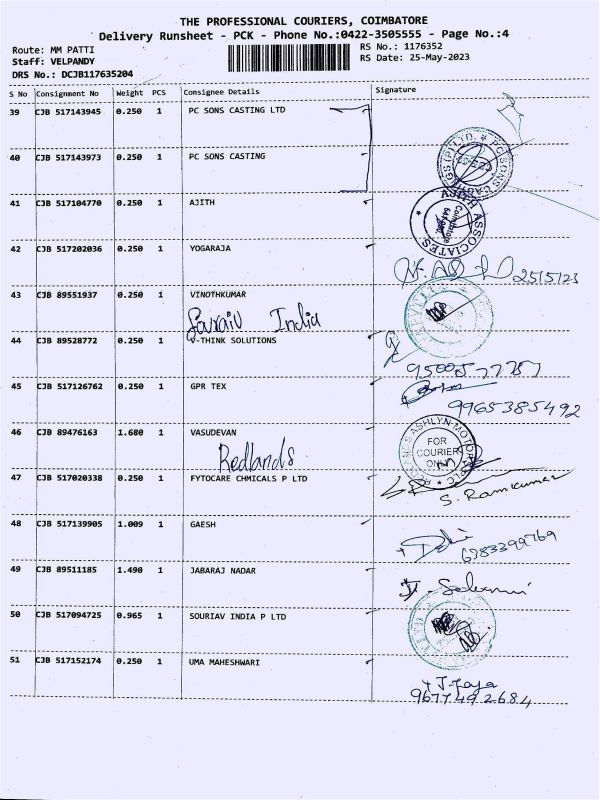 THE PROFESSIONAL COURIERS, COIMBATORE
Delivery Runsheet - PCK - Phone No.:0422-3505555 - Page No.:4
Route: MM PATTI
Staff: VELPANDY
DRS No.: DCJB117635204
RS No.: 1176352
RS Date: 25-May-2023
S No Consignment No Weight PCS Consignee Details Signature
39 CJB 517143945 0.250 1 PC SONS CASTING LTD
40 CJB 517143973 0.250 1 PC SONS CASTING
41 CJB 517104770 0.250 1 AJITH
ASSOCIATES
42 CJB 517202036 0.250 1 YOGARAJA
43 CJB 89551937 0.250 1 VINOTHKUMAR
India
44 CJB 89528772 0.250 1 V-THINK SOLUTIONS
45 CJB 517126762 0.250 1 GPR TEX
9965385492
46 CJB 89476163 1.680 1 VASUDEVAN
Redlands
ASHLYN MOTOR
FOR
COURIER
ONLY
47 CJB 517020338 0.250 1 FYTOCARE CHMICALS P LTD
S. Ramkumar
48 CJB 517139905 1.009 1 GAESH
6383399769
49 CJB 89511185 1.490 1 JABARAJ NADAR
50 CJB 517094725 0.965 1 SOURIAV INDIA P LTD
51 CJB 517152174 0.250 1 UMA MAHESHWARI
9677492684